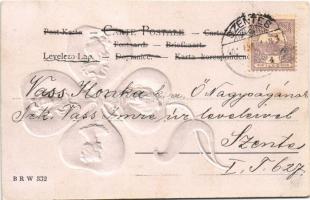 Post-Karte — CARTE POSTALE — Cartolina
Postcard — Briefkaart
Levelező-Lap. — — Karta korespondencyjna
SZENTES
4
Vass Ilonka Ő Nagyságának
Vass Imre úr leveleivel
Szentes
I. T. 627
B R W 332